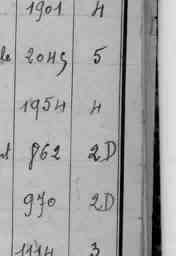 1901 4
le 2049 5
1954 4
t 862 2D
970 2D
1114 3